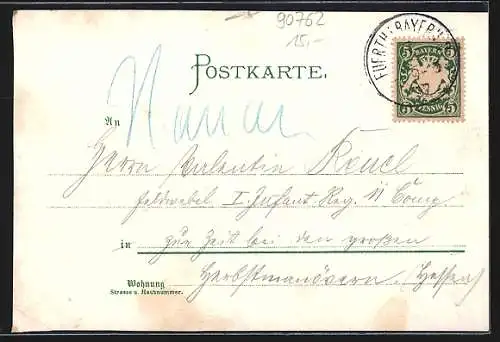 90762
15,-
FUERTH (BAYERN
BAYERN
5 5
5 PFENNIG 5
POSTKARTE.
An
Herrn Valentin Reuel
Feldwebel I. Infant. Reg. 11 Comp
in zur Zeit bei den großen
Herbstmanövern. (Hessen)
Wohnung
Strasse u. Hausnummer.